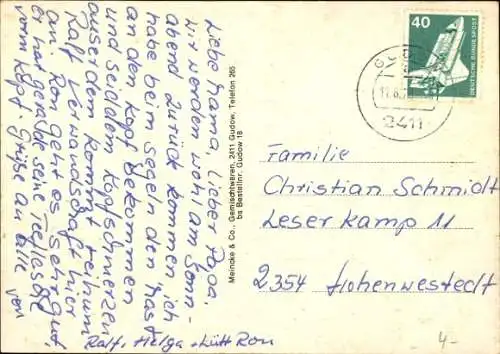 Liebe Mama, Lieber Papa.
Wir werden wohl am Sonn-
abend zurück kommen, ich
habe beim segeln den Mast
an den Kopf bekommen
und seiddem Kopfschmerzen
ausserdem kommt
Ralf Verwandschaft hier
an. Ron geht es sehr gut
er hat gerade seine Teeflasche
vorm Kopf. Grüße an alle von
Ralf, Helga + Lütt Ron
Meincke & Co., Gemischtwaren, 2411 Gudow, Telefon 265
ba Bestellnr. Gudow 18
40
DEUTSCHE BUNDESPOST
2411
Familie
Christian Schmidt
Leser Kamp 11
2354 Hohenwestedt
4-